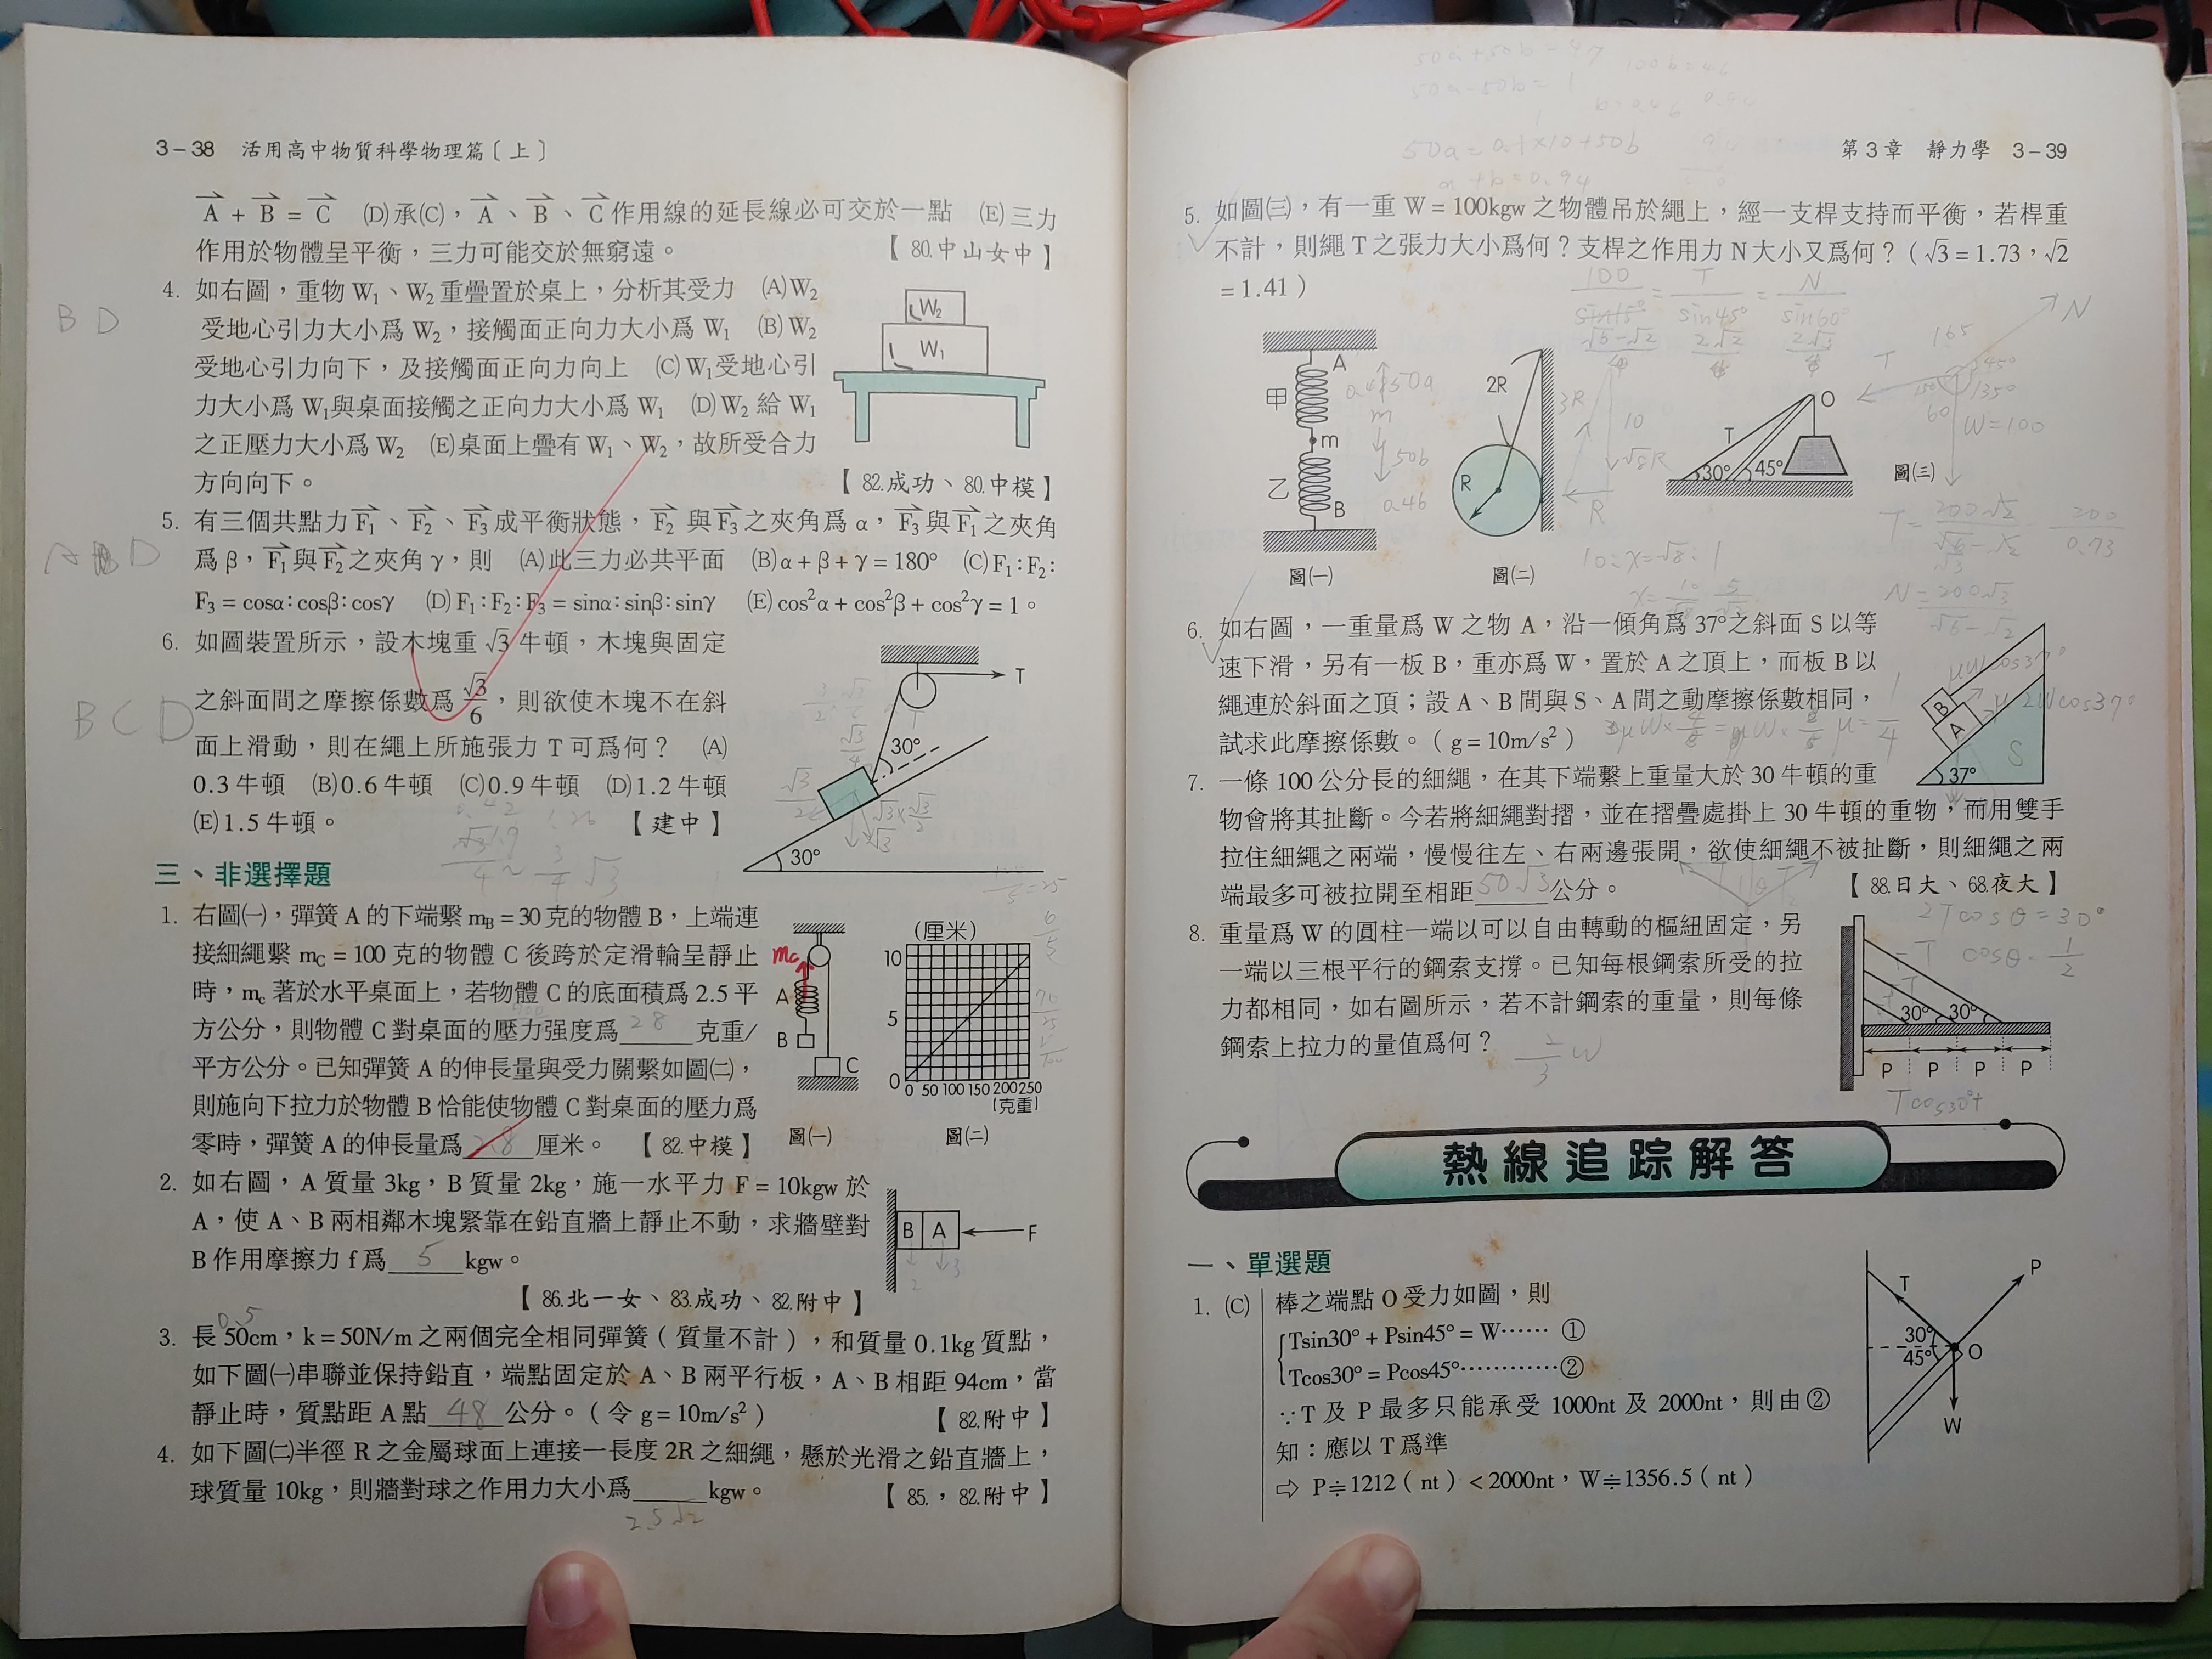 3－38 活用高中物質科學物理篇〔上〕
A + B = C (D)承(C)，A、B、C作用線的延長線必可交於一點 (E)三力
作用於物體呈平衡，三力可能交於無窮遠。 【80.中山女中】
B D
4. 如右圖，重物 W₁、W₂ 重疊置於桌上，分析其受力 (A)W₂
受地心引力大小爲 W₂，接觸面正向力大小爲 W₁ (B)W₂
受地心引力向下，及接觸面正向力向上 (C)W₁受地心引
力大小爲 W₁與桌面接觸之正向力大小爲 W₁ (D)W₂ 給 W₁
之正壓力大小爲 W₂ (E)桌面上疊有 W₁、W₂，故所受合力
方向向下。 【82.成功、80.中模】
W₂
W₁
5. 有三個共點力F₁、F₂、F₃成平衡狀態，F₂ 與F₃之夾角爲 α，F₃與F₁之夾角
爲 β，F₁與F₂之夾角 γ，則 (A)此三力必共平面 (B)α+β+γ=180° (C)F₁:F₂:
F₃ = cosα:cosβ:cosγ (D) F₁:F₂:F₃ = sinα:sinβ:sinγ (E) cos²α + cos²β + cos²γ = 1。
6. 如圖裝置所示，設木塊重 √3 牛頓，木塊與固定
B C D
之斜面間之摩擦係數爲 √3/6，則欲使木塊不在斜
面上滑動，則在繩上所施張力 T 可爲何？ (A)
0.3 牛頓 (B)0.6 牛頓 (C)0.9 牛頓 (D)1.2 牛頓
(E)1.5 牛頓。 【建中】
T
30°
30°
三、非選擇題
1. 右圖㈠，彈簧 A 的下端繫 mB = 30 克的物體 B，上端連
接細繩繫 mC = 100 克的物體 C 後跨於定滑輪呈靜止
時，mc 著於水平桌面上，若物體 C 的底面積爲 2.5 平
方公分，則物體 C 對桌面的壓力強度爲 28 克重/
平方公分。已知彈簧 A 的伸長量與受力關繫如圖㈡，
則施向下拉力於物體 B 恰能使物體 C 對桌面的壓力爲
零時，彈簧 A 的伸長量爲 28 厘米。 【82.中模】
mc
A
B
C
圖㈠
(厘米)
10
5
0
0 50 100 150 200 250
(克重)
圖㈡
2. 如右圖，A 質量 3kg，B 質量 2kg，施一水平力 F = 10kgw 於
A，使 A、B 兩相鄰木塊緊靠在鉛直牆上靜止不動，求牆壁對
B 作用摩擦力 f 爲 5 kgw。
【86.北一女、83.成功、82.附中】
B A F
2 3
0.5
3. 長 50cm，k = 50N/m 之兩個完全相同彈簧（質量不計），和質量 0.1kg 質點，
如下圖㈠串聯並保持鉛直，端點固定於 A、B 兩平行板，A、B 相距 94cm，當
靜止時，質點距 A 點 48 公分。（令 g = 10m/s²） 【82.附中】
4. 如下圖㈡半徑 R 之金屬球面上連接一長度 2R 之細繩，懸於光滑之鉛直牆上，
球質量 10kg，則牆對球之作用力大小爲 kgw。 【85.，82.附中】
2.5√2
50a+50b=47
50a-50b=1
第3章 靜力學 3－39
5. 如圖㈢，有一重 W = 100kgw 之物體吊於繩上，經一支桿支持而平衡，若桿重
不計，則繩 T 之張力大小爲何？支桿之作用力 N 大小又爲何？（√3 = 1.73，√2
= 1.41）
100/sin15° = T/sin45° = N/sin60°
甲
A
m
乙
B
圖㈠
2R
R
圖㈡
T
O
30° 45°
圖㈢
N
W=100
6. 如右圖，一重量爲 W 之物 A，沿一傾角爲 37°之斜面 S 以等
速下滑，另有一板 B，重亦爲 W，置於 A 之頂上，而板 B 以
繩連於斜面之頂；設 A、B 間與 S、A 間之動摩擦係數相同，
試求此摩擦係數。（g = 10m/s²）
B
A
S
37°
7. 一條 100 公分長的細繩，在其下端繫上重量大於 30 牛頓的重
物會將其扯斷。今若將細繩對摺，並在摺疊處掛上 30 牛頓的重物，而用雙手
拉住細繩之兩端，慢慢往左、右兩邊張開，欲使細繩不被扯斷，則細繩之兩
端最多可被拉開至相距 50√3 公分。 【88.日大、68.夜大】
8. 重量爲 W 的圓柱一端以可以自由轉動的樞紐固定，另
一端以三根平行的鋼索支撐。已知每根鋼索所受的拉
力都相同，如右圖所示，若不計鋼索的重量，則每條
鋼索上拉力的量值爲何？ 2/3 W
30° 30°
P P P P
熱線追踪解答
一、單選題
1. (C) 棒之端點 O 受力如圖，則
Tsin30° + Psin45° = W…… ①
Tcos30° = Pcos45°…………②
∵T 及 P 最多只能承受 1000nt 及 2000nt，則由②
知：應以 T 爲準
⇨ P≒1212（nt）<2000nt，W≒1356.5（nt）
T
P
30°
45°
O
W